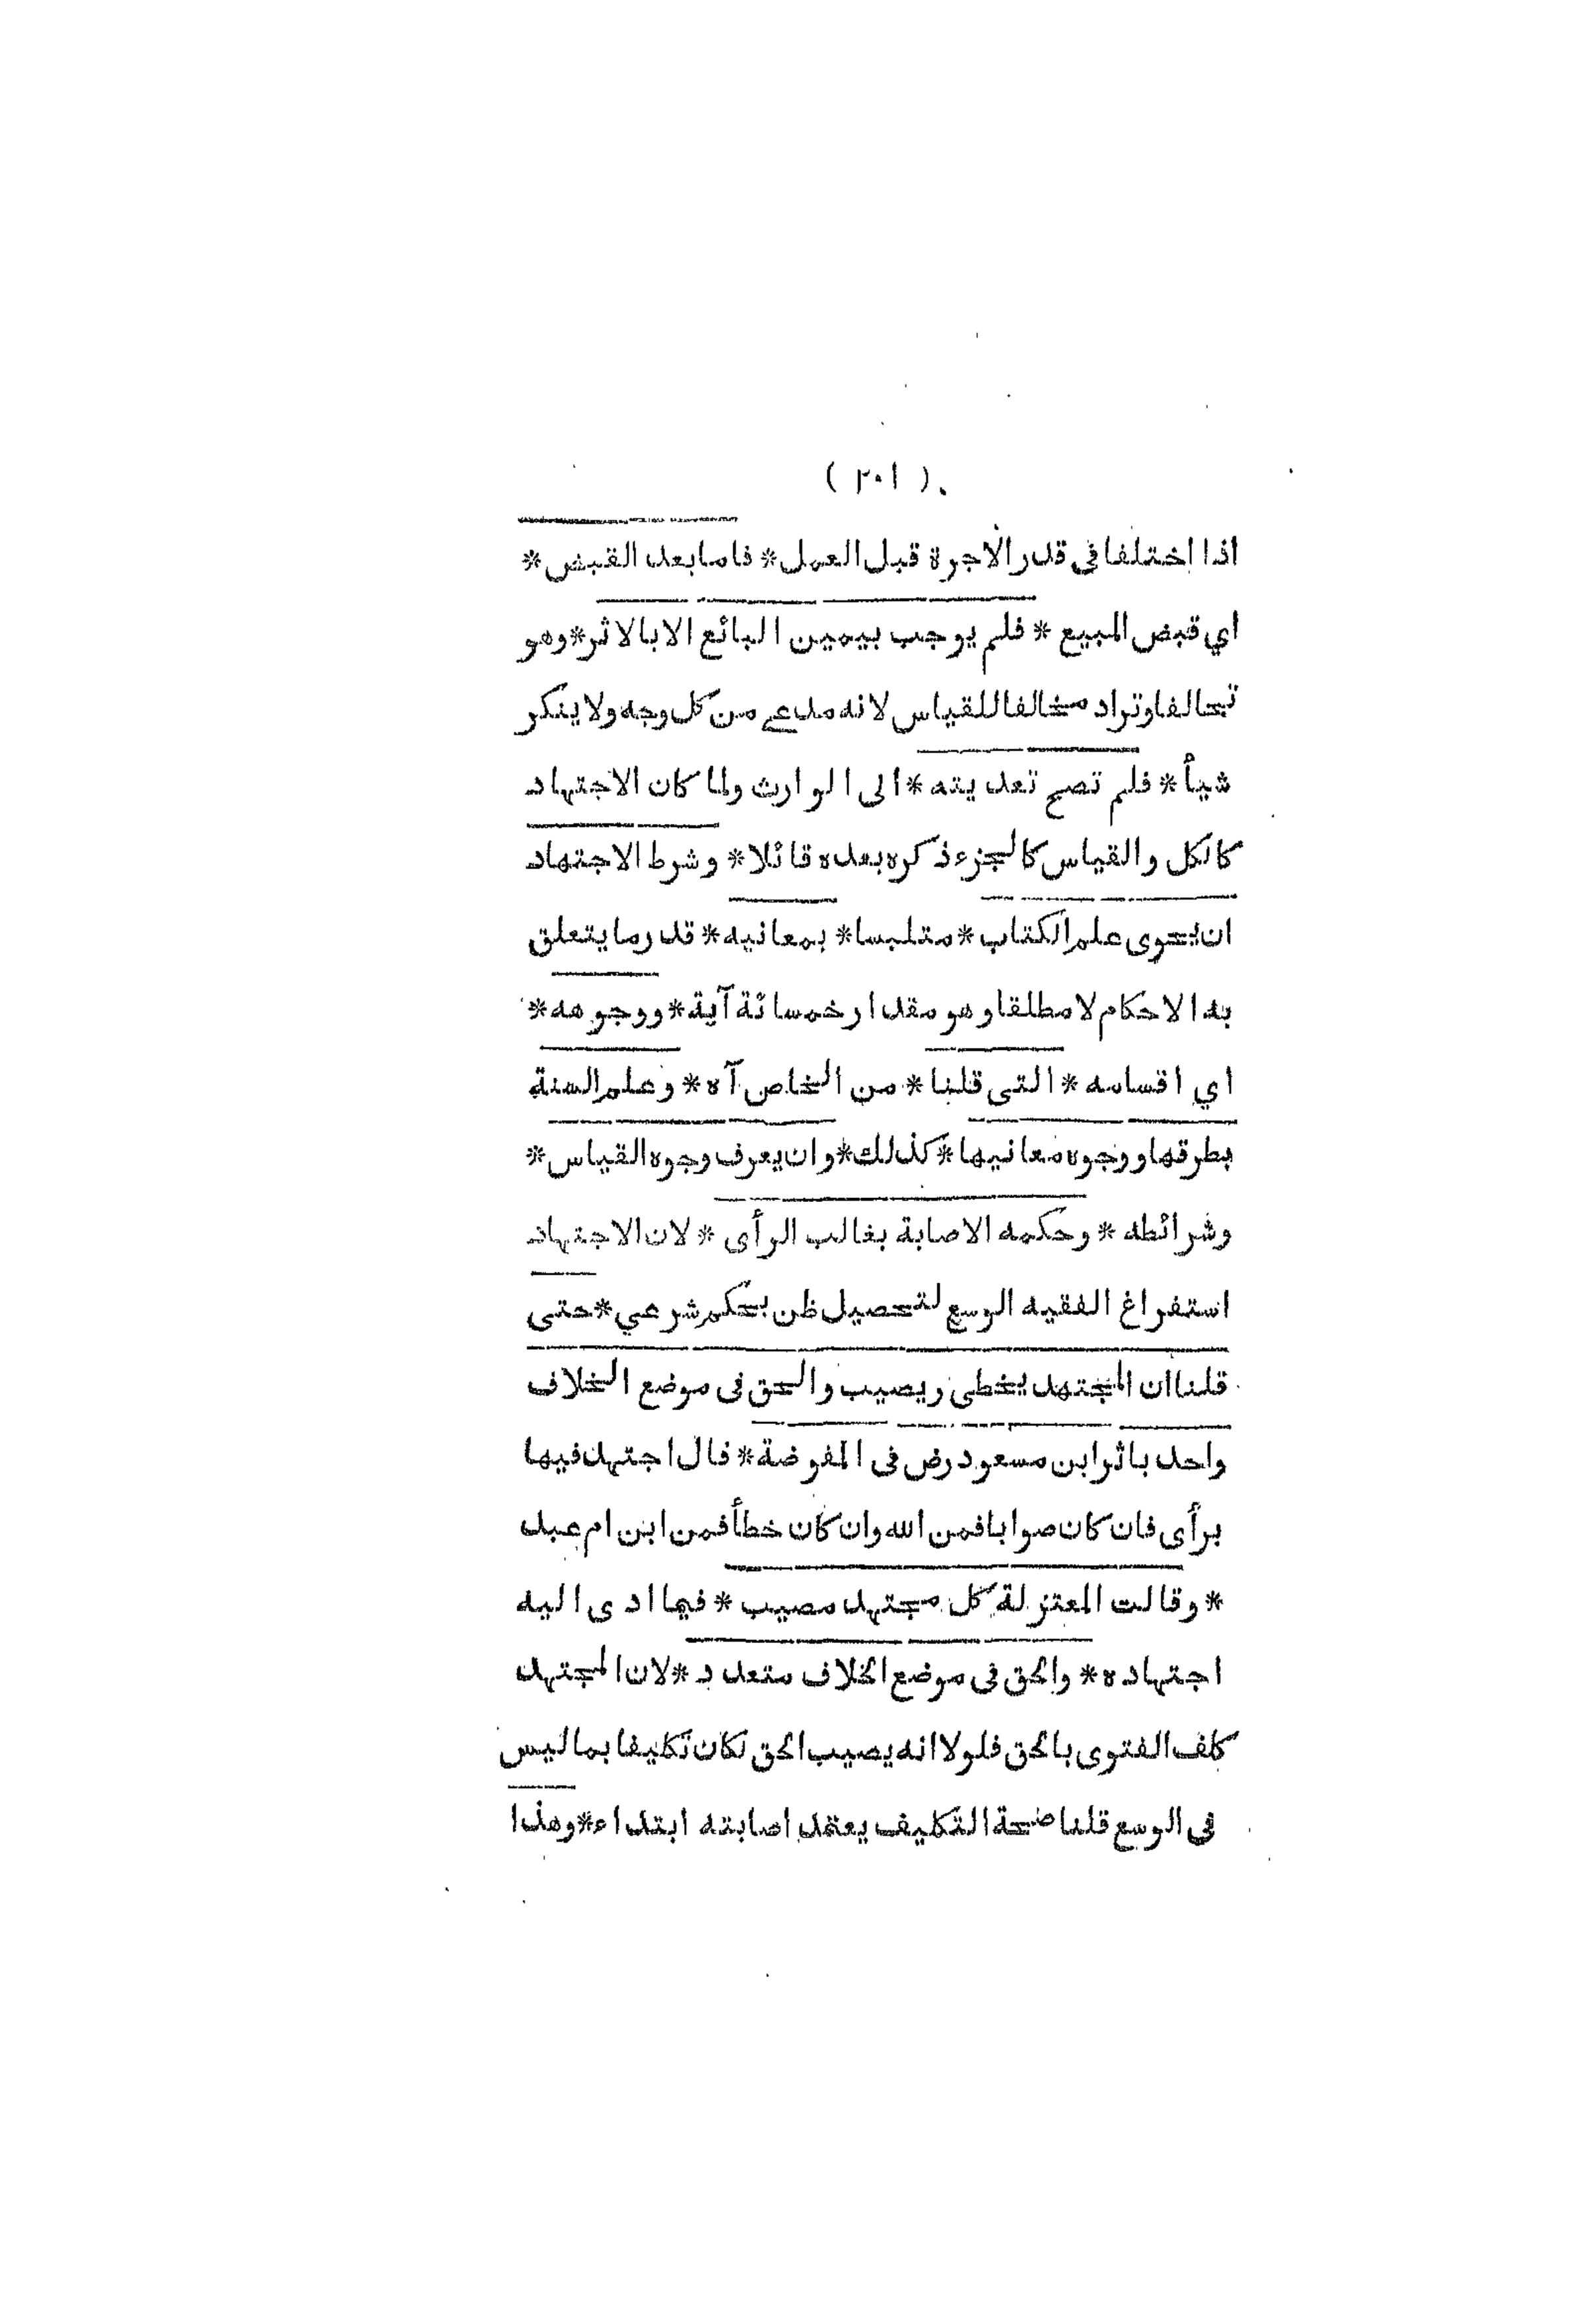 ( ٢٠١ )
اذا اختلفا فى قدر الاجرة قبل العمل * فاما بعد القبض *
اي قبض المبيع * فلم يوجب بيمين البائع الا بالاثر * وهو
تحالفا وتراد مخالفا للقياس لانه مدعى من كل وجه ولا ينكر
شيأ * فلم تصح تعديته * الى الوارث ولما كان الاجتهاد
كالكل والقياس كالجزء ذكره بعده قائلا * وشرط الاجتهاد
ان يحوى علم الكتاب * متلبسا * بمعانيه * قدر ما يتعلق
به الاحكام لا مطلقا وهو مقدار خمسائة آية * ووجوهه *
اي اقسامه * التى قلنا * من الخاص آه * وعلم السنة
بطرقها ووجوه معانيها * كذلك * وان يعرف وجوه القياس *
وشرائطه * وحكمه الاصابة بغالب الرأى * لان الاجتهاد
استفراغ الفقيه الوسع لتحصيل ظن بحكم شرعي * حتى
قلنا ان المجتهد يخطى ويصيب والحق فى موضع الخلاف
واحد باثر ابن مسعود رض فى المفوضة * قال اجتهد فيها
برأى فان كان صوابا فمن الله وان كان خطأ فمن ابن ام عبد
* وقالت المعتزلة كل مجتهد مصيب * فيما ادى اليه
اجتهاده * والحق فى موضع الخلاف متعدد * لان المجتهد
كلف الفتوى بالحق فلولا انه يصيب الحق لكان تكليفا بما ليس
فى الوسع قلنا صحة التكليف يعتمد اصابته ابتداء * وهذا